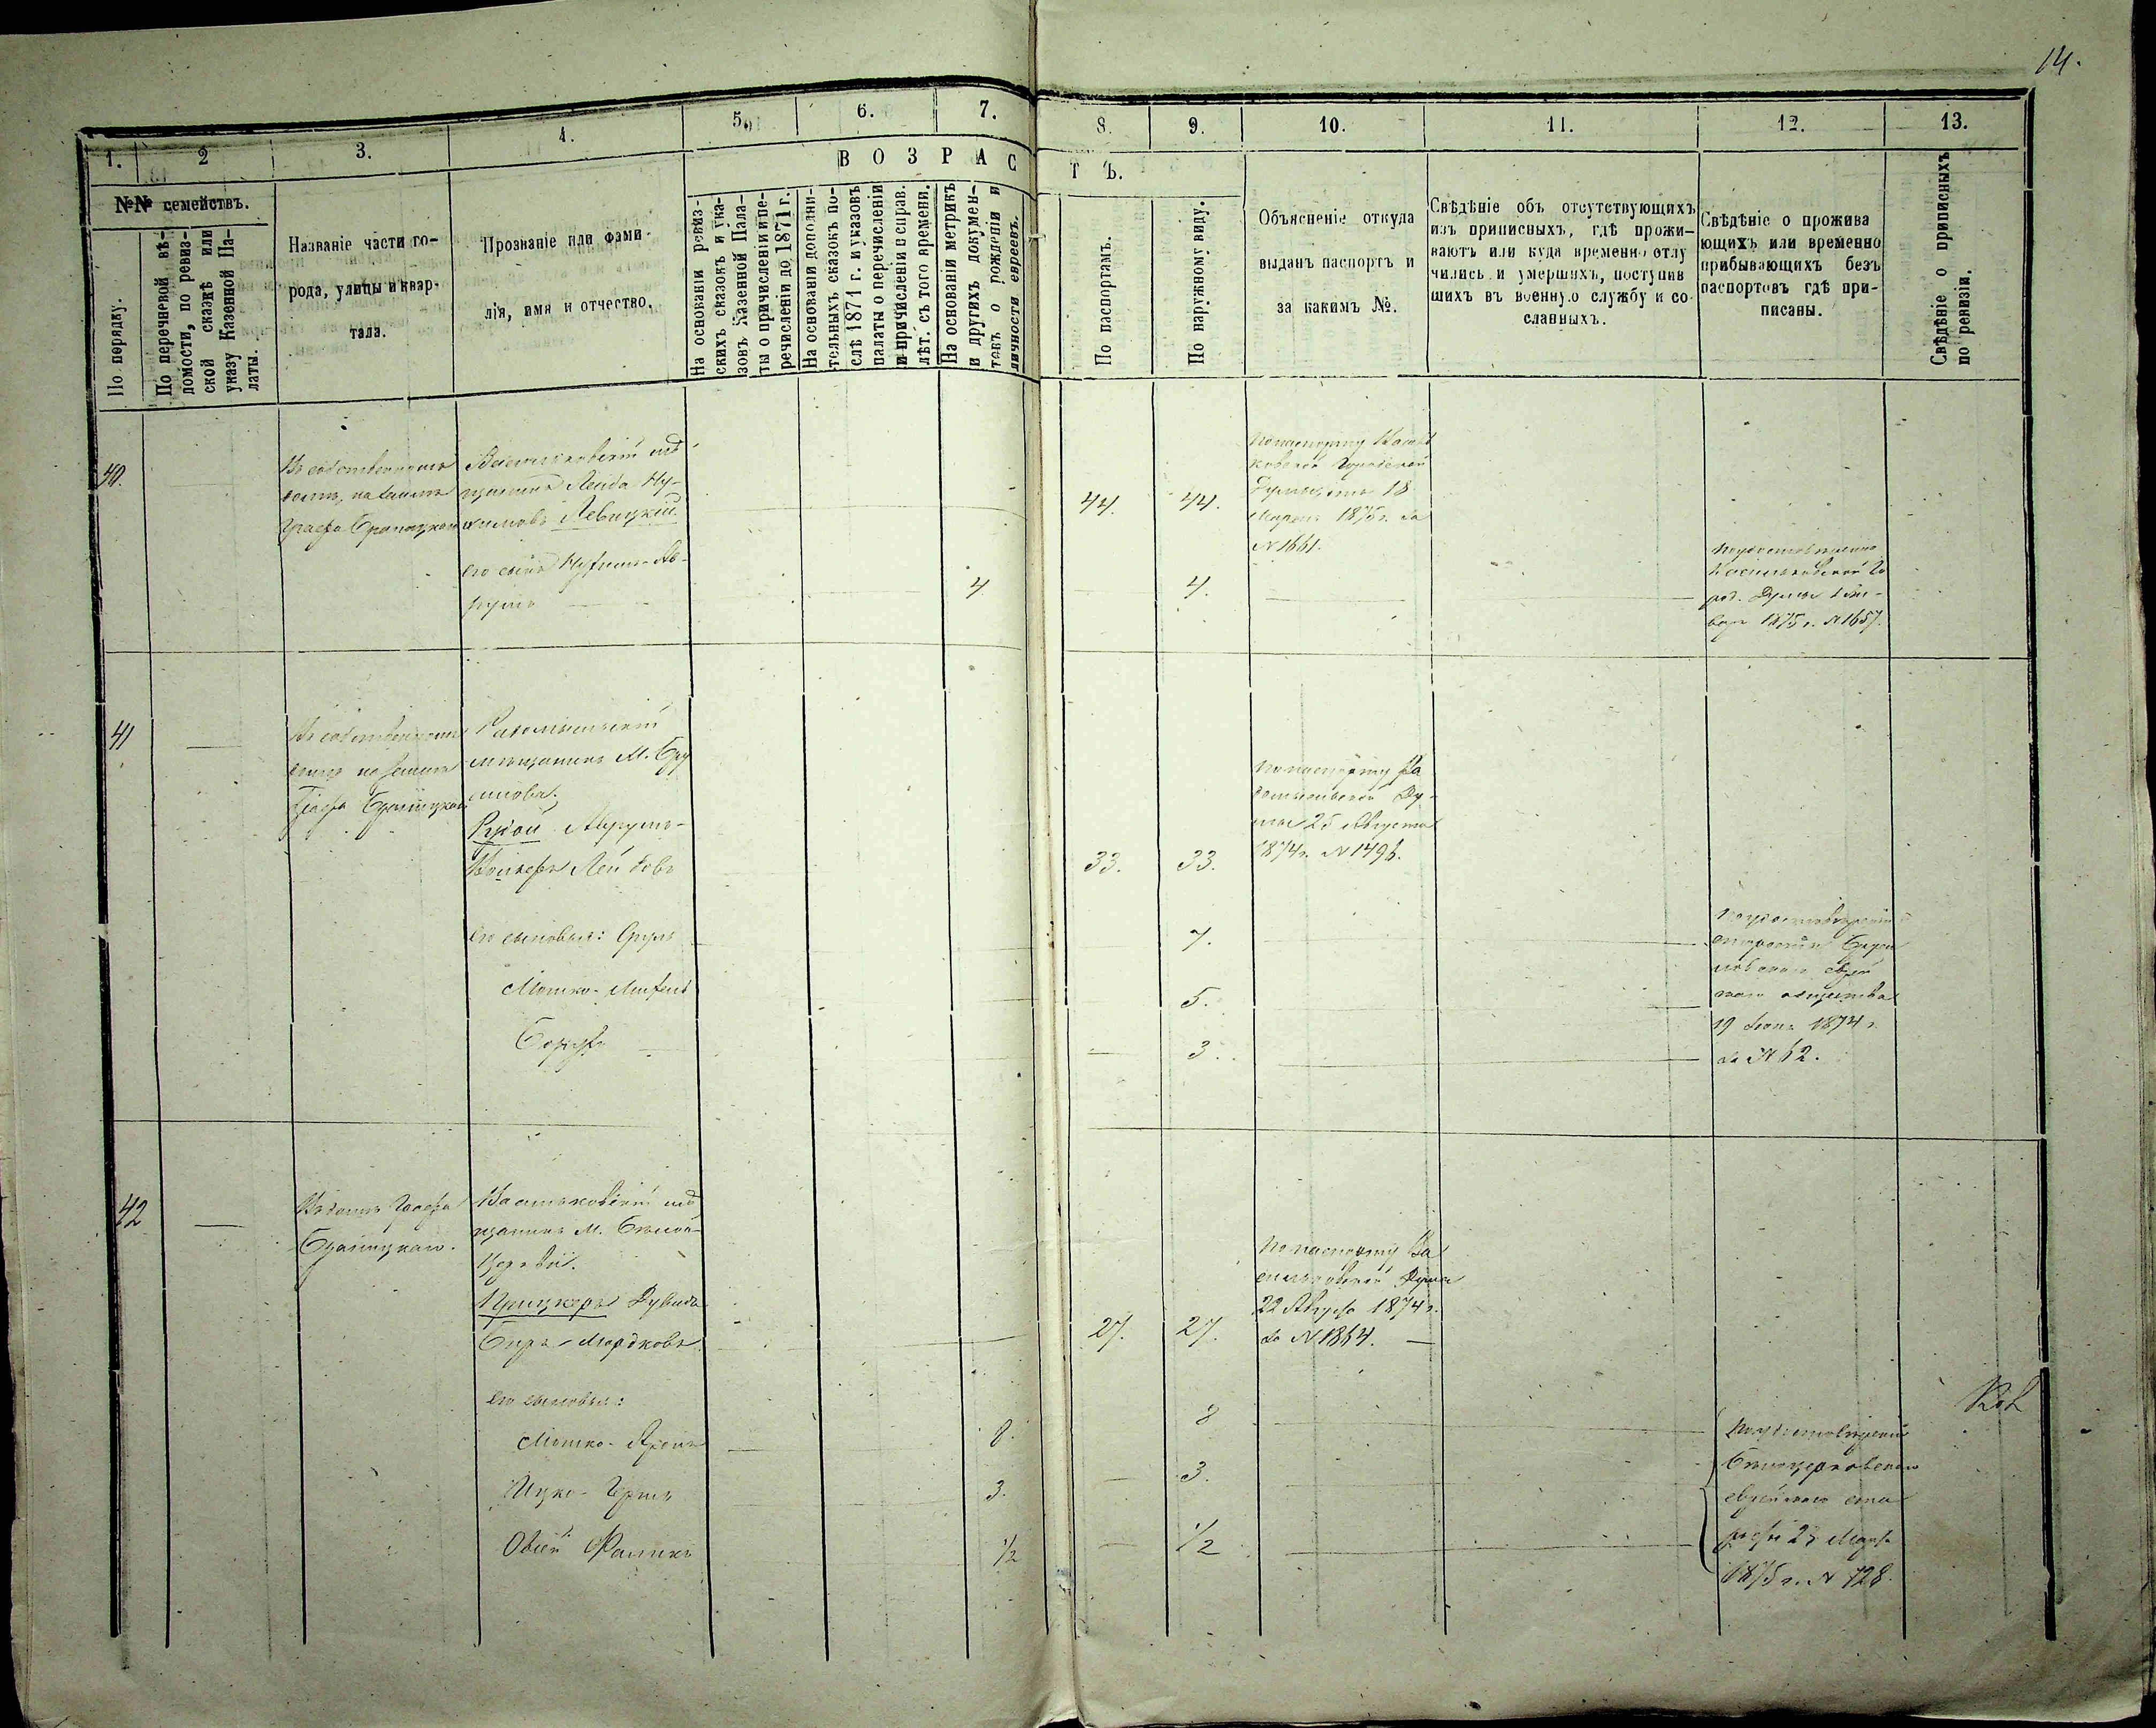 14.
1. 2 3. 4. 5. 6. 7. 8. 9. 10. 11. 12. 13.
В О З Р А С Т Ъ.
№№ семействъ.
По порядку.
По перечневой вѣ-
домости, по ревиз-
ской сказкѣ или
указу Казенной Па-
латы.
Названіе части го-
рода, улицы и квар-
тала.
Прозваніе или фами-
лія, имя и отчество.
На основаніи ревиз-
скихъ сказокъ и ука-
зовъ Казенной Пала-
ты о причисленіи и пе-
речисленіи до 1871 г.
На основаніи дополни-
тельныхъ сказокъ по-
слѣ 1871 г. и указовъ
палаты о перечисленіи
и причисленіи и справ.
лѣт. съ того времени.
На основаніи метрикъ
и другихъ докумен-
товъ о рожденіи и
личности евреевъ.
По паспортамъ.
По наружному виду.
Объясненіе откуда
выданъ паспортъ и
за какимъ №.
Свѣдѣніе объ отсутствующихъ
изъ приписныхъ, гдѣ прожи-
ваютъ или куда временно отлу
чились и умершихъ, поступив
шихъ въ военную службу и со-
сланныхъ.
Свѣдѣніе о прожива
ющихъ или временно
прибывающихъ безъ
паспортовъ гдѣ при-
писаны.
Свѣдѣніе о приписныхъ
по ревизіи.
40.
Въ собственномъ
домѣ, на землѣ
Графа Браницкой
Васильковскій мѣ
щанинъ Лейба Ну-
химовъ Левицкій
44. 44.
По паспорту Василь
ковской Городской
Думы, отъ 18
Марта 1875 г. за
№ 1661.
его сынъ Нухимъ-Ав-
румъ
4 4.
Васильковской Го
род. Думы
1875 г. № 1657.
41
Въ собственномъ
домѣ на землѣ
Графа Браницкой
Радомысльскій
мѣщанинъ М. Бру
силова,
Аврумъ-
Волько Лейбовъ
33. 33.
По паспорту Ра
домысльской Ду-
мы 25 Августа
1874 г. № 1496.
его сыновья: Сруль 7.
Мошко- 5.
Борухъ 3.
По удостовѣренію
Бруси
ловскаго еврей
скаго общества
19 1874 г.
за № 62.
42
Въ домѣ Графа
Браницкаго.
Васильковскій мѣ
щанинъ М. Бѣлой-
Церкви.
Прицкеръ Дувидъ
Беръ Мордковъ.
27. 27.
По паспорту Ва
сильковской Думы
22 Августа 1874 г.
за № 1864. —
его сыновья:
Мошко- 8. 8
Ицко- Гершъ 3. 3.
Овсій Фаликъ 1/2 1/2
По удостовѣренію
Бѣлоцерковскаго
еврейскаго ста
росты 25 Марта
1875 г. № 728.